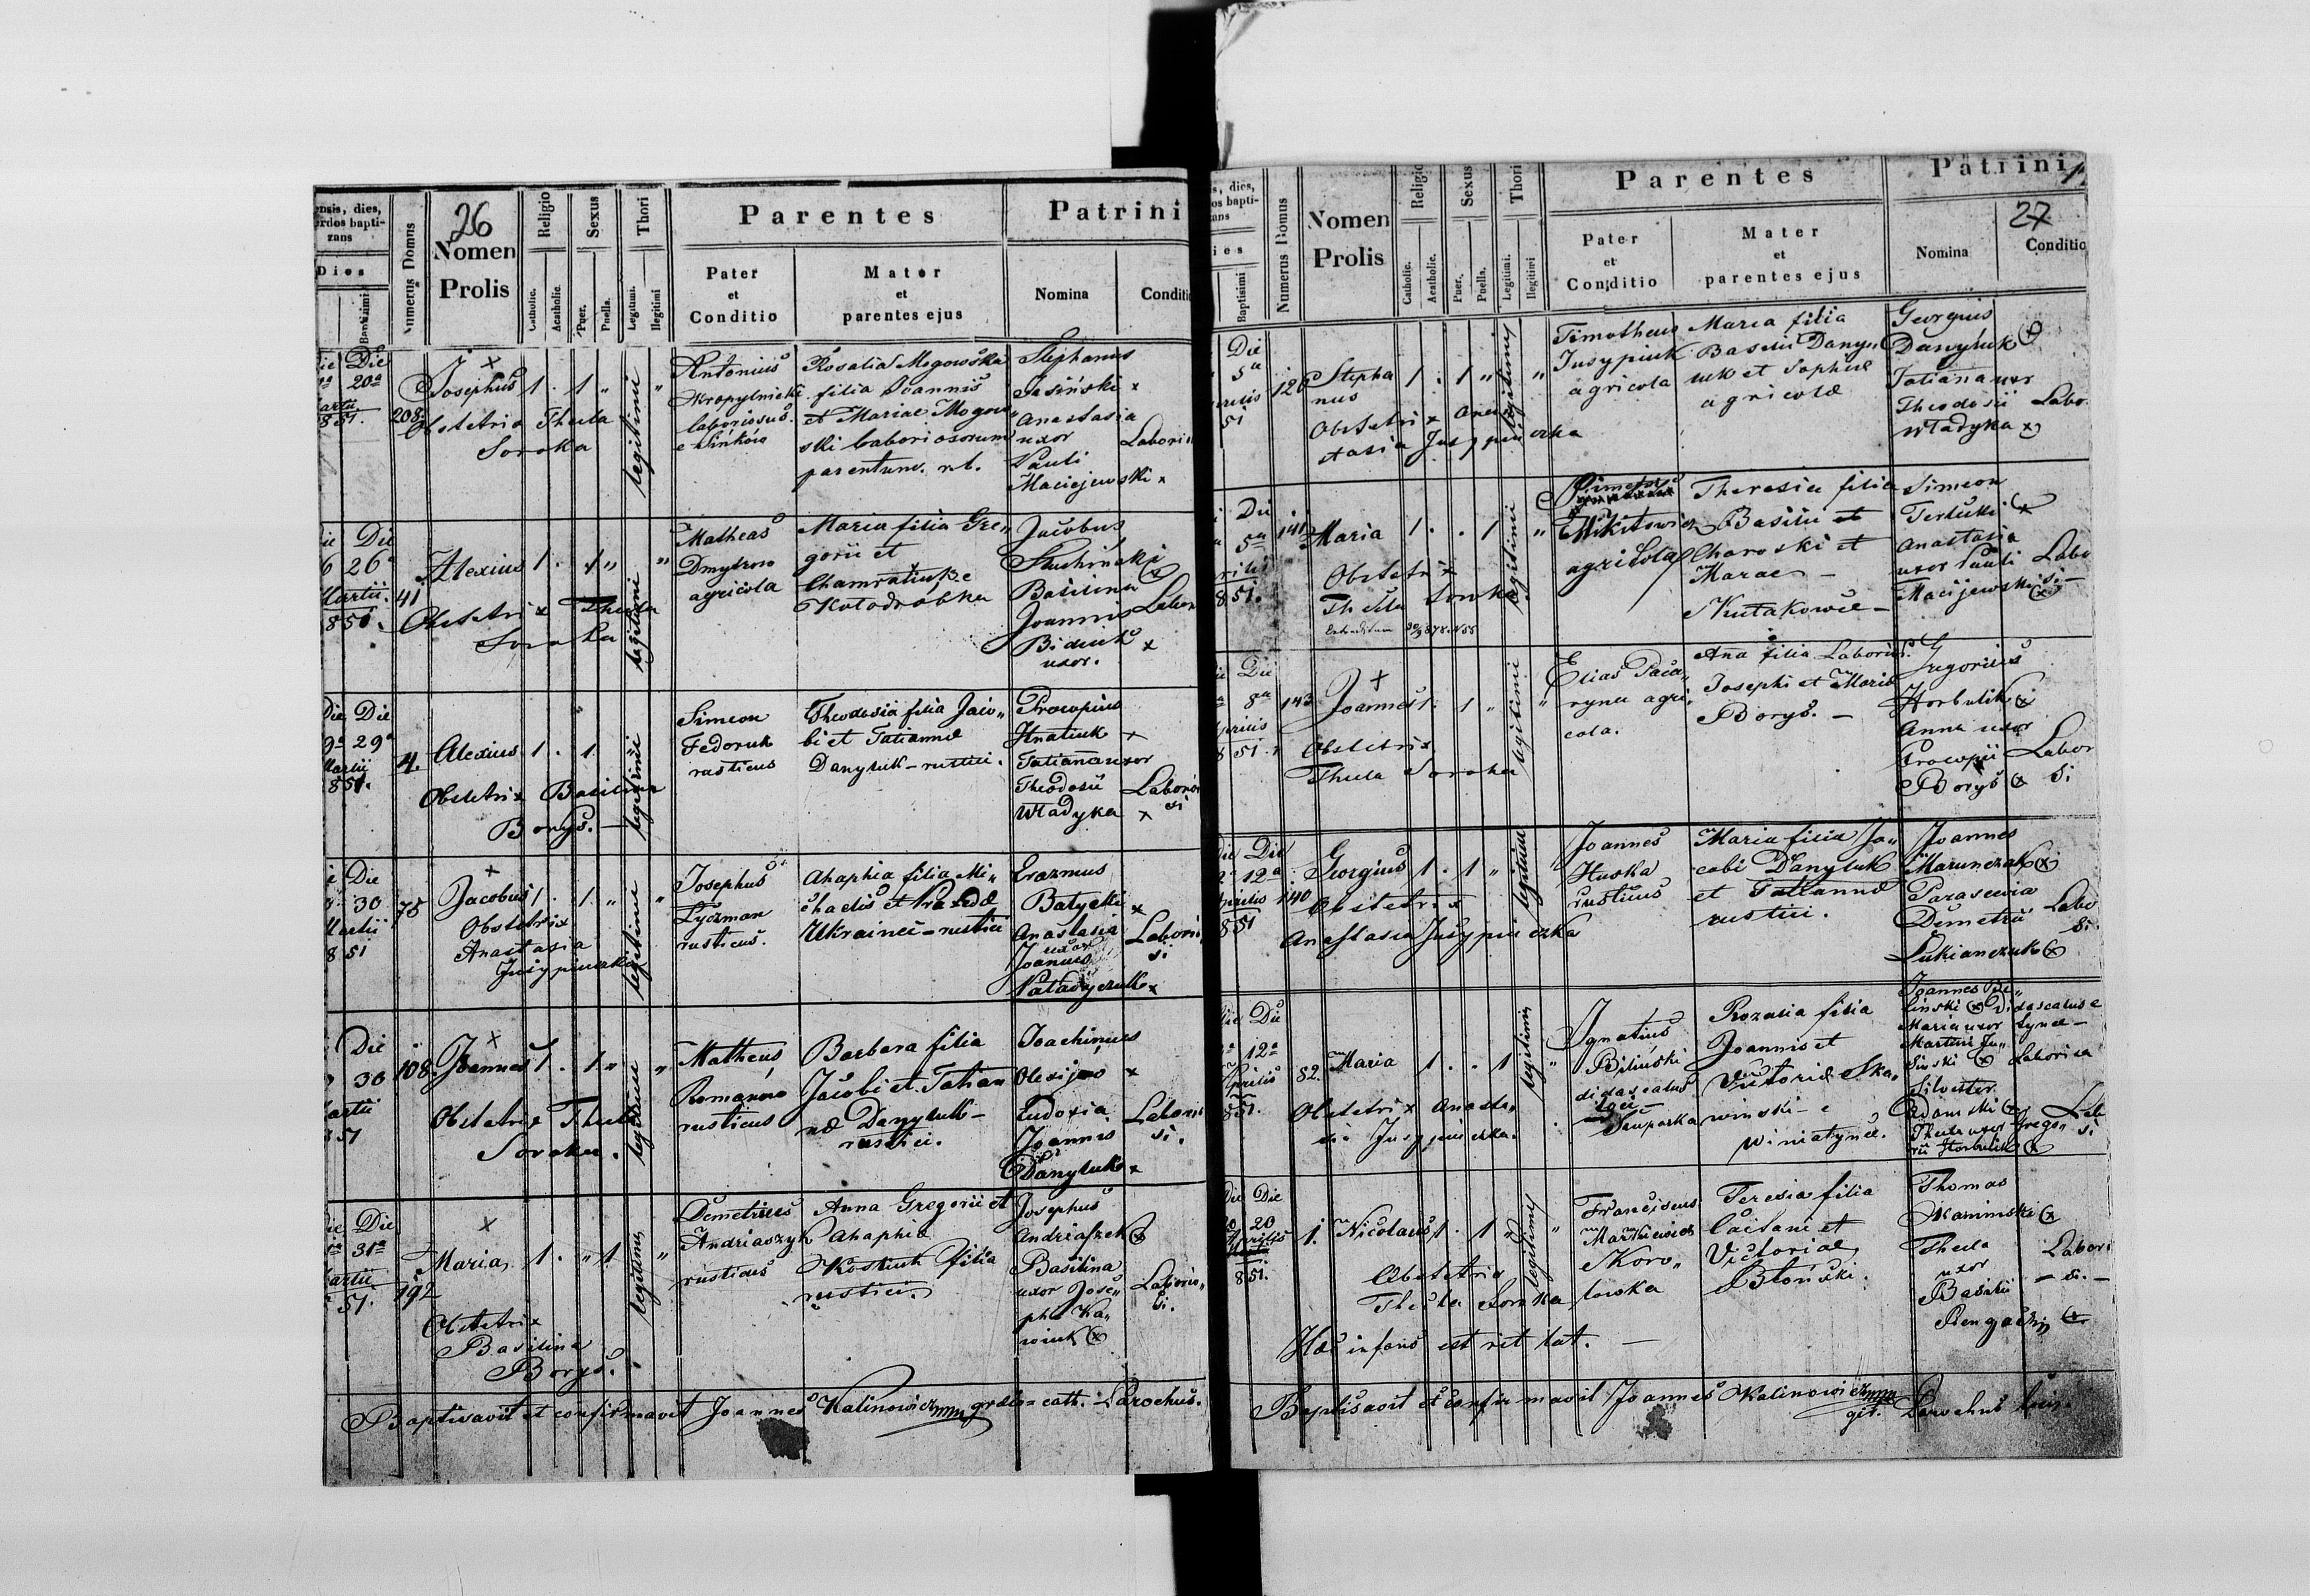 26
ensis, dies,
erdos bapti-
zans
Dies
Baptismi
Numerus Domus
Nomen
Prolis
Religio
Catholic.
Acatholic.
Sexus
Puer.
Puella.
Thori
Legitimi.
Illegitimi
Parentes
Pater
et
Conditio
Mater
et
parentes ejus
Patrini
Nomina
Conditio
Die Die
20a
artii
851.
208.
Josephus 1 . 1 "
Obstetrix Thecla
Soroka
legitimi "
Antonius
Kropylnicki
laboriosus
e Sinkow
Rosalia Mogowska
filia Joannis
et Mariae Mogow"
ski laboriosorum
parentum. r. l.
Stephanus
Jasinski x
Anastasia
uxor
Pauli
Maciejewski x
Labori
Die Die
6 26a
Martii.
851.
41
Alexius 1 . 1 "
Obstetrix Thecla
Soroka
legitimi "
Matheas
Dmytrow
agricola
Maria filia Gre"
gorii et
Kolodrobka
Jacobus
x
Basilina
Joannis
uxor. x
Labor
Die Die
9a 29a
Martii
851.
4.
Alexius 1 . 1
Obstetrix Basilina
Borys. —
legitimi
Simeon
Fedoruk
rusticus
Theodosia filia Jaco"
bi et Tatiannae
Danyluk - rustici.
Procopius
Hnatiuk x
Tatiana uxor
Theodosii
Wladyka x
Laborio
si
Die
30
Martii
851
75
Jacobus 1 . 1 "
Obstetrix
Anastasia
Jusypiuczka
legitimi "
Josephus
Lyczman
rusticus.
Ahaphia filia Mi"
chaelis et Praxedae
Ukrainei - rustici
Erazmus
Batycki x
Anastasia
uxor
Joannis
x
Laborio
si
Die
30
artii
851
108.
Joannes 1 . 1 "
Obstetrix Thecla
Soroka.
legitimi "
Mattheus
Romanow
rusticus
Barbara filia
Jacobi et Tatian
nae Danyluk -
rustici.
Joachimus
Olexijow x
Eudoxia
Joannis
Danyluk x
Laborio
si.
Die Die
31a
artii
51.
192
Maria, 1 . " 1
Obstetrix
Basilina
Borys.
legitimi "
Demetrius
Andriaszyk
rusticus
Anna Gregorii et
Ahaphiae
Kostiuk filia
rustici.
Josephus
Andriaszek x
Basilina
uxor Jose"
phi Ka"
x
Laborio"
si.
Baptisavit et confirmavit Joannes Kalinowicz mp gr. cath. Parochus.
27
s, dies,
os bapti-
zans
ies
Baptismi
Numerus Domus
Nomen
Prolis
Religio
Catholic.
Acatholic.
Sexus
Puer.
Puella.
Thori
Legitimi.
Illegitimi
Parentes
Pater
et
Conditio
Mater
et
parentes ejus
Patrini
Nomina
Conditio
Die
5a
prilis
51
126
Stepha 1 . 1 "
nus
Obstetrix Anas
tasia Jusypiuczka
legitimi "
Timotheus
Jusypiuk
agricola
Maria filia
Basilii Dany"
luk et Sophiae
agricolae
Georgius
Danyluk x
Tatiana uxor
Theodosii
Wladyka x
Labo.
Die
5a
prilis
851.
141
Maria 1 . . 1
Obstetrix
Thecla Soroka
legitimi "
Mikitowicz
agricola
Theresia filia
Basilii et
Charoski et
Mariae —
Kulakowce —
Simeon
x
Anastasia
uxor Pauli
Maciejewski x
Labo
si —
Die Die
8a
prilis
851.
143
Joannes 1 . 1 "
Obstetrix
Thecla Soroka
legitimi "
Elias Paca"
ryna agri"
cola.
Ana filia Laborios.
Josephi et Mariae
Borys. —
Gregorius
Horbulik x
Anna uxor
Procopii
Borys x
Labor
si
Die Die
12a
prilis
851
140
Georgius 1 . 1 "
Obstetrix
Anastasia Jusypiuczka
legitimi
Joannes
Huska
rusticus
Maria filia Ja"
cobi Danyluk
et Tatiannae
rustici.
Joannes
Marunczak x
Parascevia
Demetrii
Lukianczuk x
Labo
si.
Die Die
12a
prilis
851.
82.
Maria 1 . . 1
Obstetrix Anasta"
sia Jusypiuczka.
legitimi "
Ignatius
Bilinski
didascalus
loci
Rozalia filia
Joannis et
Victoriae Ska"
winski - e
Winiatynce.
Joannes Bi"
linski x Didascalus e
Maria uxor
Martini Ja"
sinski x
Silvester
Adamski x
Thecla uxor Grego"
rii Horbulik x
Die Die
20
Aprilis
851.
1.
Nicolaus 1 . 1 "
Obstetrix
Thecla Soroka
legitimi "
Franciscus
Markiewicz
Koro"
lowka
Teresia filia
Caitani et
Victoriae
Bloński.
Thomas
Kaminski x
Thecla
uxor
Basilii
x
Labori
— si. —
Hic infans est rit. lat. —
Baptisavit et confirmavit Joannes Kalinowicz mp
Parochus loci.